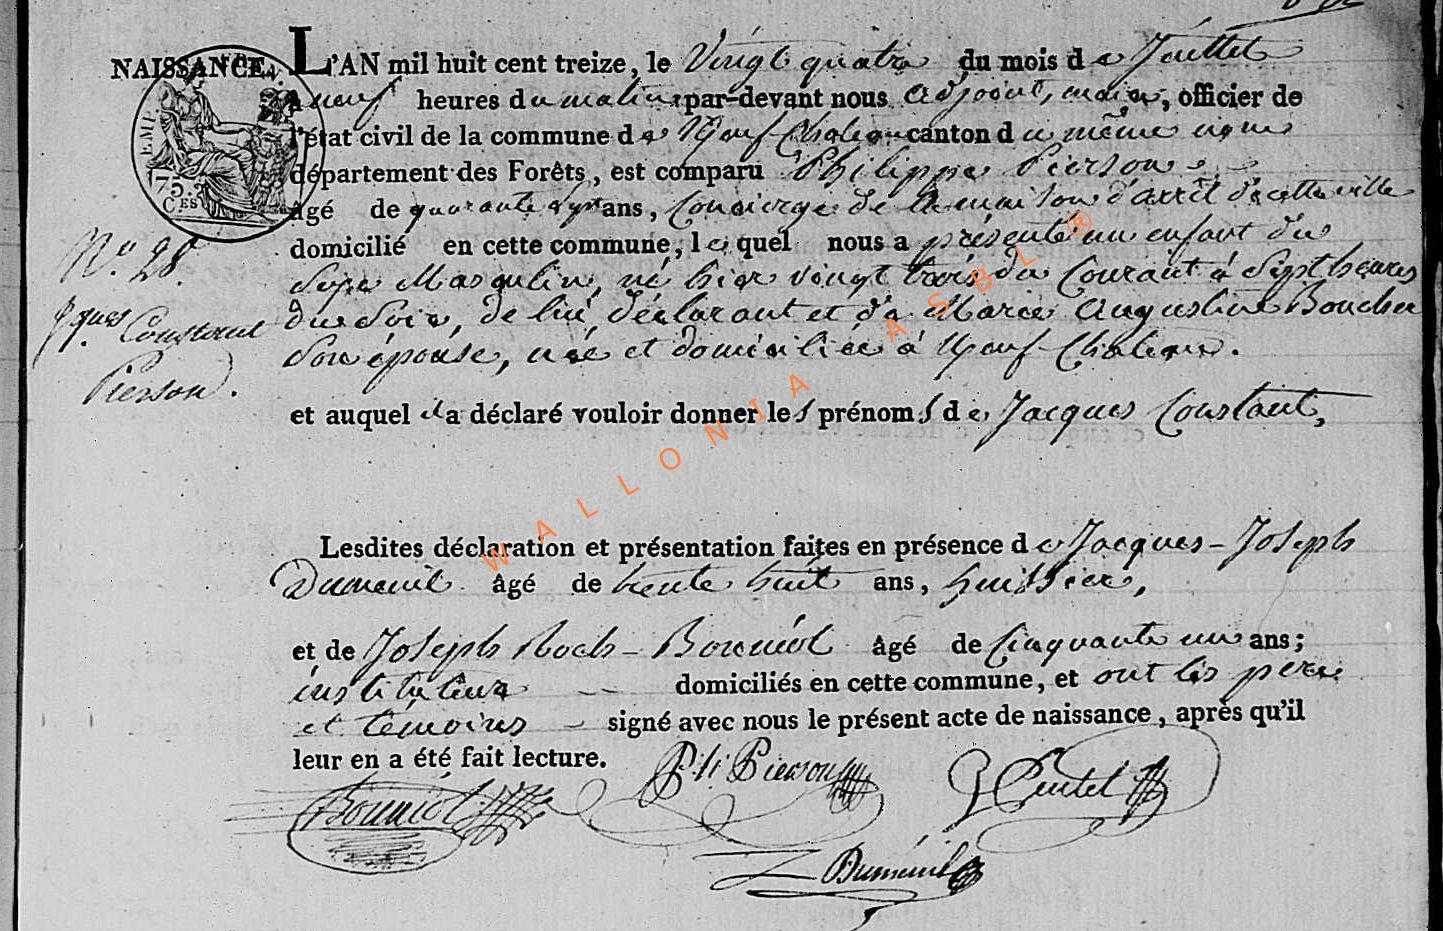 NAISSANCE. L'AN mil huit cent treize, le Vingt quatre du mois de Juillet
à neuf heures du matin par-devant nous adjoint, maire, officier de
l'état civil de la commune de Neuf-Chateau canton du même nom
département des Forêts, est comparu Philippe Pierson
âgé de quarante ans, Concierge de la maison d'arrêt de cette ville
domicilié en cette commune, lequel nous a présenté un enfant du
Sexe Masculin, né hier vingt trois du Courant à Sept heures
du Soir, de lui déclarant et de Marie Augustine Boucher
Son épouse, née et domiciliée à Neuf-Chateau.
et auquel il a déclaré vouloir donner les prénoms de Jacques Constant,
Lesdites déclaration et présentation faites en présence de Jacques-Joseph
Dumenil âgé de trente huit ans, huissier,
et de Joseph Roch-Bouniol âgé de Cinquante un ans;
instituteur domiciliés en cette commune, et ont les père
et témoins signé avec nous le présent acte de naissance, après qu'il
leur en a été fait lecture.
Ph Pierson
Bouniol
Dumenil
No. 28
Jques Constant
Pierson.
75.
CES
WALLONIA ASBL ®